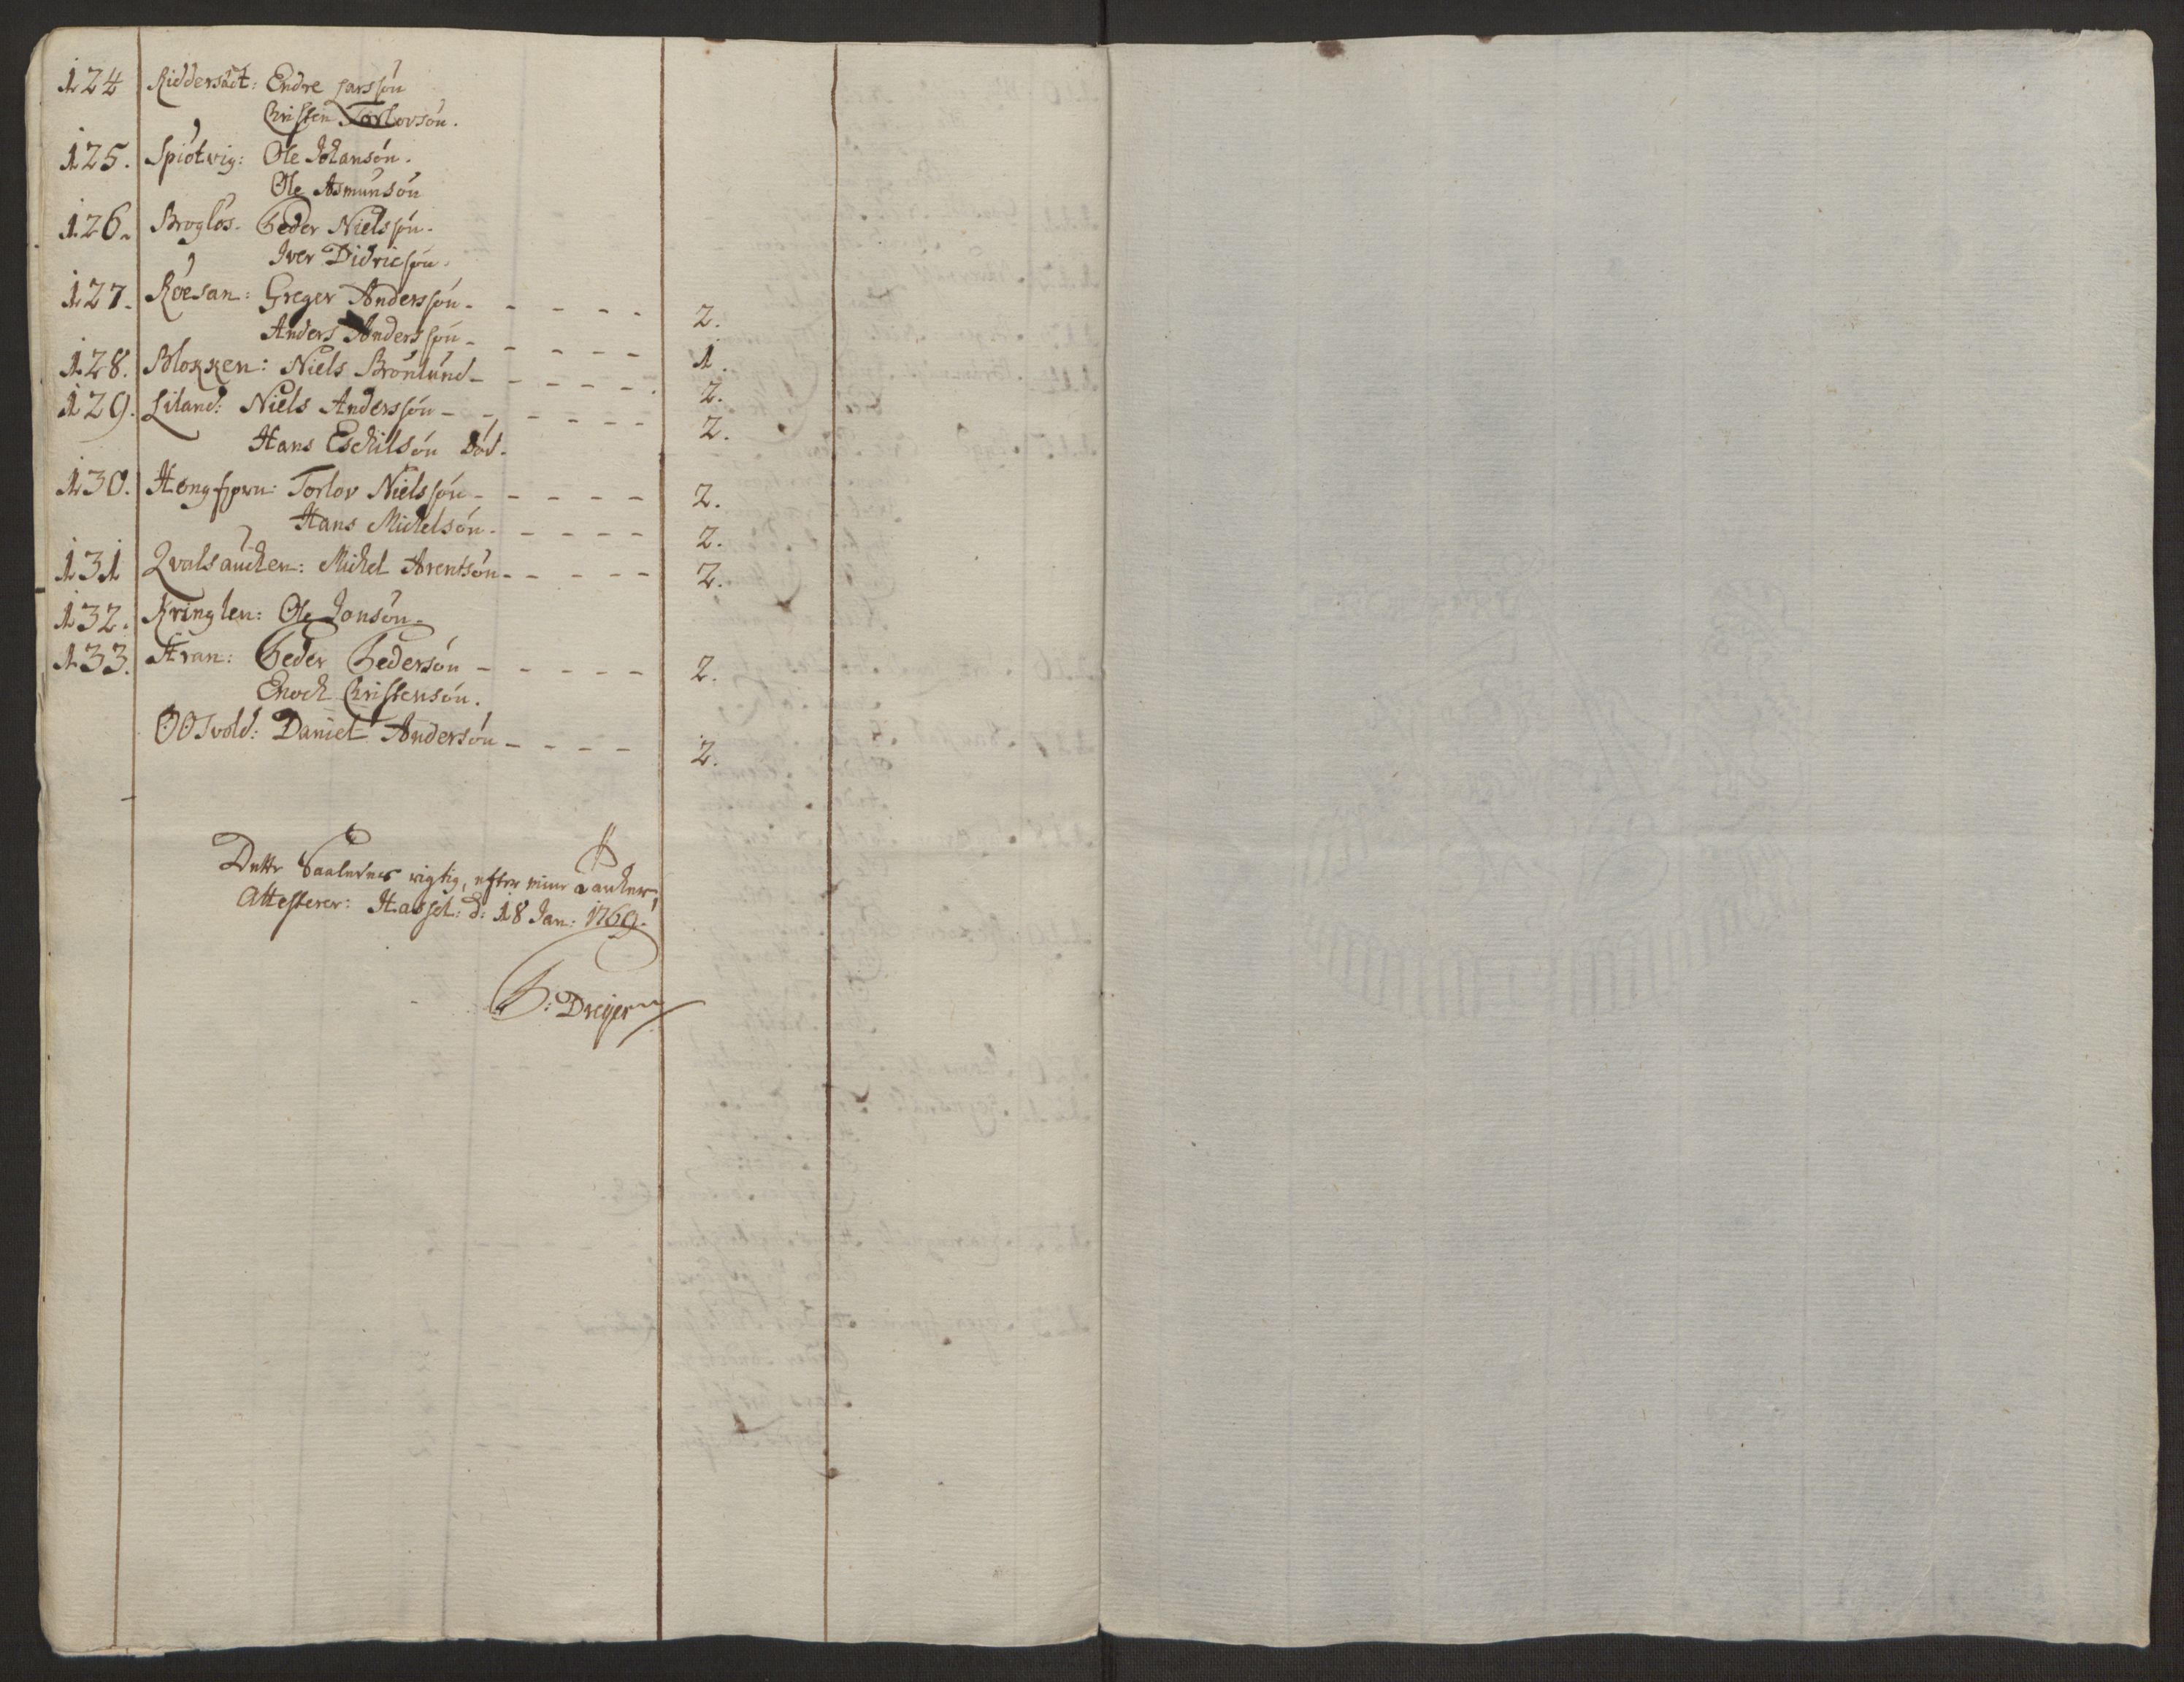 124 Riddersædt: Endre Larssøn
Christen Torlovsøn.
125. Spiötvig: Ole Johansøn.
Ole Asmunsøn
126. Broglös. Peder Nielssøn.
Iver Didricssøn.
127. Röesan: Greger Anderssøn - - - - - 2.
Anders Anderssøn - - - - - 1.
128. Blokken: Niels Brönlund - - - - - 2.
129. Liland: Niels Anderssøn - - - - - - 2.
Hans Eschilsøn död.
130. Hongfjorn: Torlov Nielssøn - - - - - 2.
Hans Michelsøn. - - - - 2.
131 Qvalsauchen: Michel Arentsøn - - - - - 2.
132. Kringlen: Ole Jonsøn.
133. Hran: Peder Pedersøn - - - - - 2.
Enoch Christensøn.
Oosvold: Daniel Andersøn - - - - 2.
Dette Saaledes rigtig, efter mine Tanker,
Attesterer: Hassel: d: 18 Jan: 1769.
P: Dreyer